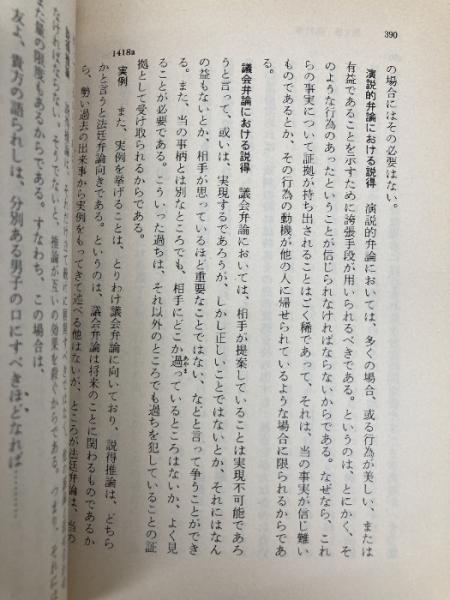 390
の場合にはその必要はない。
演説的弁論における説得　演説的弁論においては、多くの場合、或る行為が美しい、または
有益であることを示すために誇張手段が用いられるべきである。というのは、とにかく、そ
のような行為のあったことが信じられなければならないからである。なぜなら、これ
らの事実について証拠が持ち出されることはごく稀であって、それは、当の事実が信じ難い
ものであるとか、その行為の動機が他の人に帰せられているような場合に限られるからであ
る。
議会弁論における説得　議会弁論においては、相手が提案していることは実現不可能であろ
うと言って、或いは、実現するであろうが、しかし正しいことではないとか、それにはなん
の益もないとか、相手が思っているほど重要なことではない、などと言って争うことができ
る。また、当の事柄とは別なところでも、相手にどこか過っているところはないか、よく見
ることが必要である。こういった過ちは、それ以外のところでも過ちを犯していることの証
拠として受け取られるからである。
1418a
実例　また、実例を挙げることは、とりわけ議会弁論に向いており、説得推論は、どちら
かと言うと法廷弁論向きである。というのは、議会弁論は将来のことに関わるものであるか
ら、勢い過去の出来事から実例をもってきて述べる他はないが、ところが法廷弁論は、当の
推論が互いの効果を殺ぐからである。
また量の限度もあるからである。すなわち、この場合は、
友よ、貴方の語られしは、分別ある男子の口にすべきほどなれば……